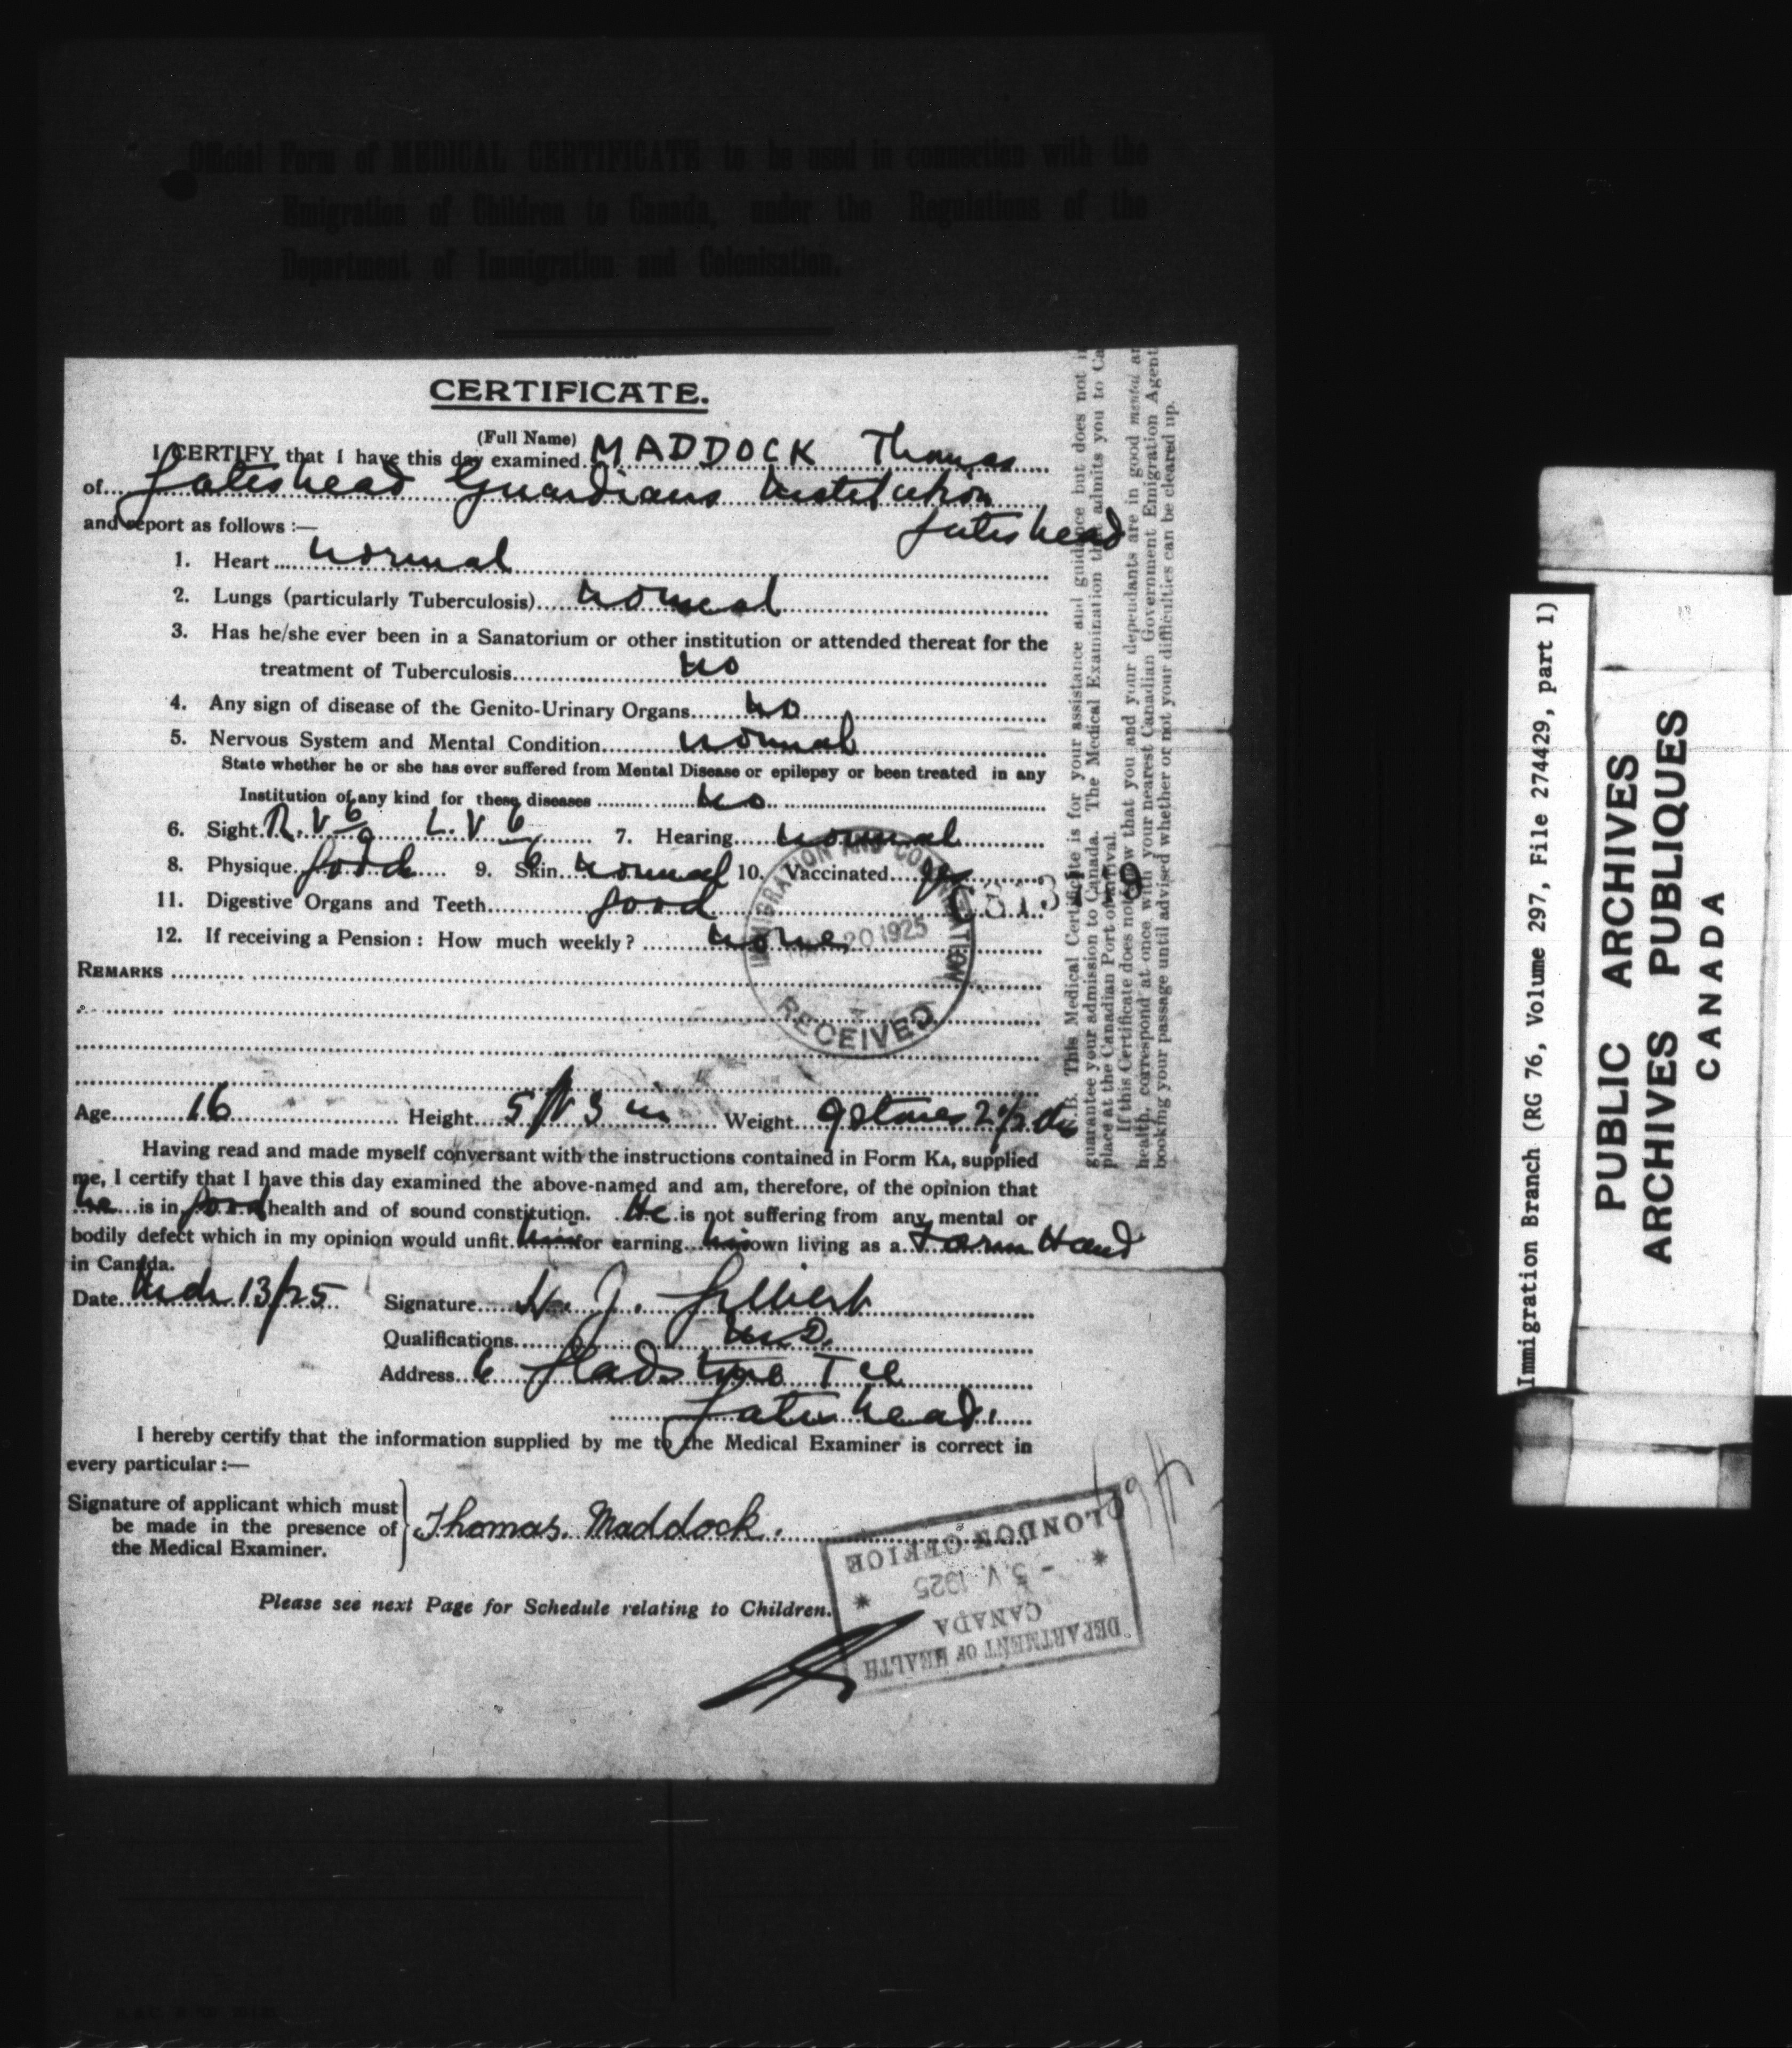 Official Form of MEDICAL CERTIFICATE to be used in connection with the
Emigration of Children to Canada, under the Regulations of the
Department of Immigration and Colonisation.
CERTIFICATE.
(Full Name)
I CERTIFY that I have this day examined MADDOCK Thomas
of Gateshead Guardians Institution
Gateshead
and report as follows :—
1. Heart normal
2. Lungs (particularly Tuberculosis) normal
3. Has he/she ever been in a Sanatorium or other institution or attended thereat for the
treatment of Tuberculosis no
4. Any sign of disease of the Genito-Urinary Organs no
5. Nervous System and Mental Condition normal
State whether he or she has ever suffered from Mental Disease or epilepsy or been treated in any
Institution of any kind for these diseases no
6. Sight R. V 6/9 L. V 6/ 7. Hearing normal
8. Physique good 9. Skin normal 10. Vaccinated yes
11. Digestive Organs and Teeth good
12. If receiving a Pension : How much weekly ? none
REMARKS
IMMIGRATION AND COLONIZATION
20 1925
RECEIVED
Age 16 Height 5 ft 3 in Weight 9 stones 2½ lbs
Having read and made myself conversant with the instructions contained in Form KA, supplied
me, I certify that I have this day examined the above-named and am, therefore, of the opinion that
he is in good health and of sound constitution. He is not suffering from any mental or
bodily defect which in my opinion would unfit him for earning his own living as a Farm Hand
in Canada.
Date Mch 13/25 Signature W. J. Gilbert
Qualifications M.D.
Address 6 Gladstone Tce
Gateshead.
I hereby certify that the information supplied by me to the Medical Examiner is correct in
every particular :—
Signature of applicant which must
be made in the presence of
the Medical Examiner.
Thomas Maddock.
Please see next Page for Schedule relating to Children.
DEPARTMENT OF HEALTH
CANADA
- 5. V. 1925
LONDON OFFICE
N.B. This Medical Certificate is for your assistance and guidance but does not
guarantee your admission to Canada. The Medical Examination that admits you to Ca
place at the Canadian Port of Arrival.
If this Certificate does not show that you and your dependants are in good mental
health, correspond at once with your nearest Canadian Government Emigration Agent
booking your passage until advised whether or not your difficulties can be cleared up.
Immigration Branch (RG 76, Volume 297, File 274429, part 1)
PUBLIC ARCHIVES
ARCHIVES PUBLIQUES
CANADA